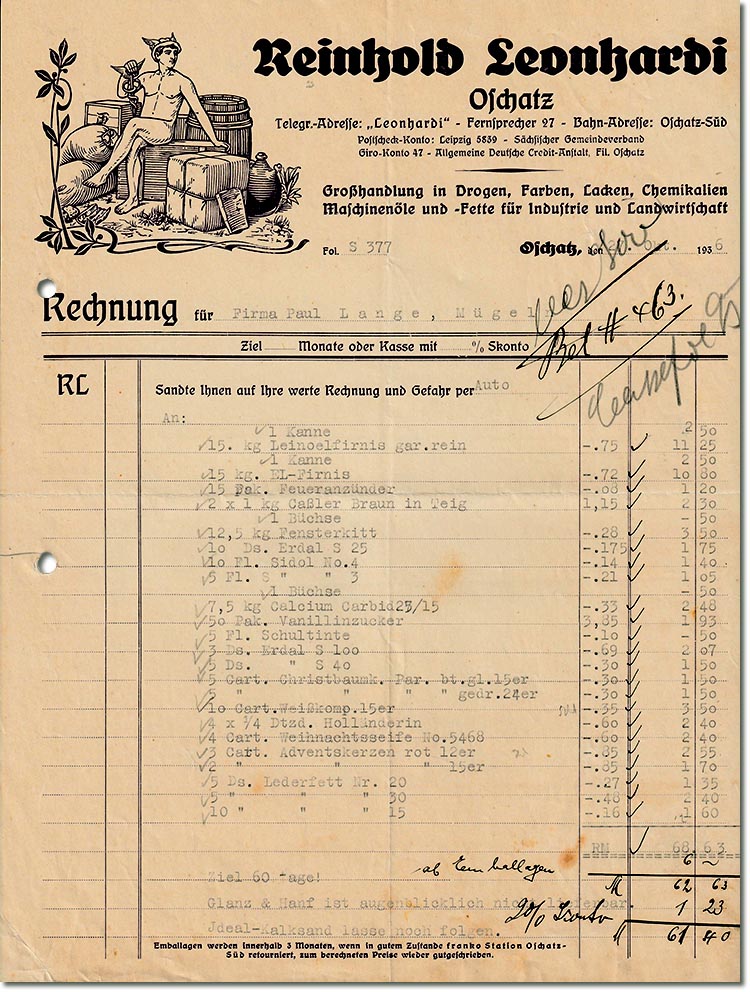 Reinhold Leonhardi
Oschatz
Telegr.-Adresse: „Leonhardi“ - Fernsprecher 27 - Bahn-Adresse: Oschatz-Süd
Postscheck-Konto: Leipzig 5839 - Sächsischer Gemeindeverband
Giro-Konto 47 - Allgemeine Deutsche Credit-Anstalt, Fil. Oschatz
Großhandlung in Drogen, Farben, Lacken, Chemikalien
Maschinenöle und -Fette für Industrie und Landwirtschaft
Fol. S 377 Oschatz, den 1936
Rechnung für Firma Paul Lange, Mügel
Bel # 463.
Ziel Monate oder Kasse mit % Skonto
RL Sandte Ihnen auf Ihre werte Rechnung und Gefahr per Auto
An:
1 Kanne 2 50
15. kg Leinoelfirnis gar.rein -.75 11 25
1 Kanne 2 50
15 kg. EL-Firnis -.72 10 80
15 Pak. Feueranzünder -.08 1 20
2 x 1 kg Caßler Braun in Teig 1,15 2 30
1 Büchse - 50
12,5 kg Fensterkitt -.28 3 50
10 Ds. Erdal S 25 -.175 1 75
10 Fl. Sidol No.4 -.14 1 40
5 Fl. S " " 3 -.21 1 05
1 Büchse - 50
7,5 kg Calcium Carbid25/15 -.33 2 48
50 Pak. Vanillinzucker 3,85 1 93
5 Fl. Schultinte -.10 - 50
3 Ds. Erdal S 100 -.69 2 07
5 Ds. " S 40 -.30 1 50
5 Cart. Christbaumk. Par. bt.gl.15er -.30 1 50
5 " " " " gedr.24er -.30 1 50
10 Cart.Weißkomp.15er -.35 3 50
4 x 3/4 Dtzd. Holländerin -.60 2 40
4 Cart. Weihnachtsseife No.5468 -.60 2 40
3 Cart. Adventskerzen rot 12er -.85 2 55
2 " " " 15er -.85 1 70
5 Ds. Lederfett Nr. 20 -.27 1 35
5 " " " 30 -.48 2 40
10 " " " 15 -.16 1 60
RM 68.63
ab Emballagen 6 ~
Ziel 60 Tage! M 62 63
Glanz & Hanf ist augenblicklich nicht lieferbar. 2% Skonto 1 23
Jdeal-Kalksand lasse noch folgen. M 61 40
Emballagen werden innerhalb 3 Monaten, wenn in gutem Zustande franko Station Oschatz-
Süd retourniert, zum berechneten Preise wieder gutgeschrieben.